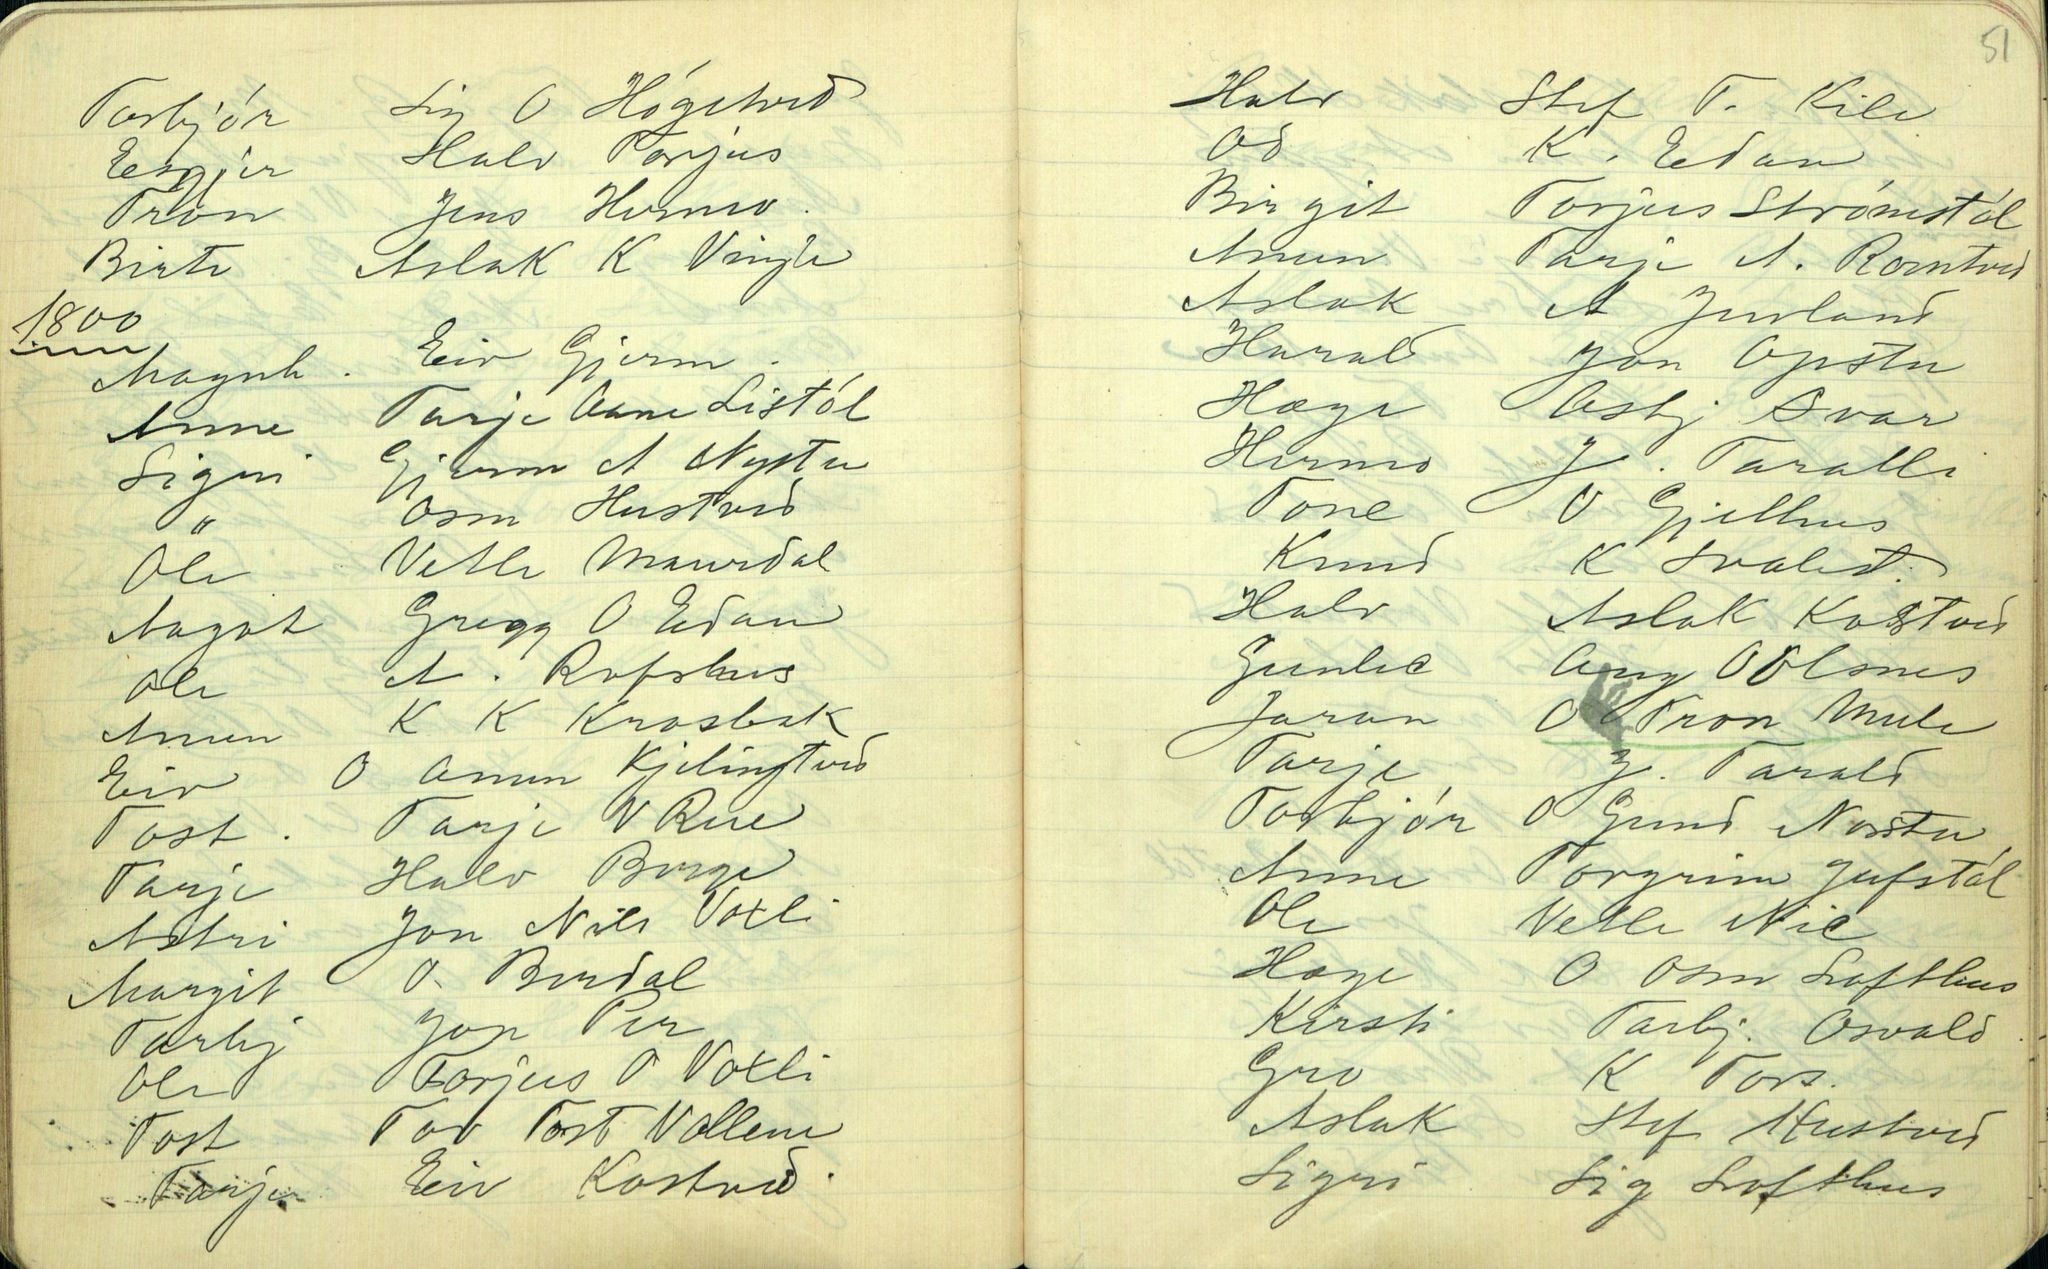 Torbjór Sig O Hógetveð
Eesgjer Halv Torjus
Tron Jens Hermo.
Birte Aslak K Vinje
1800
Magnh. Eiv Gjerm.
Anne Tarje Aane Listól
Sigri Gjerm A Nystu
" Osm Hustveð
Ole Vetle Maurdal
Aagot Gregg O Eðan
Ole A. Rofshus
Amun K K Krosbak
Eiv O Amun Kjelingtveð
Tost. Tarje V Rue
Tarje Halv Borge
Astri Jon Nils Voxli
Margit O. Berdal
Tarbj Jon Per
Ole Torjus O Voxli
Tost Tov Tost Vollene
Tarje Eiv Kostveð.
51
Halv Stef T. Kile
Oð K. Eðan
Birgit Torjus Strómstól
Amun Tarje A. Romtveð
Aslak A Juvland
Harald Jon Opstu
Hæge Asbj Svar
Hermo J. Taralli
Tone O Gjelhus
Knud K Svalest.
Halv Aslak Kostveð
Gunlei Aug O Olsnes
Joran O Tron Mule
Tarje J. Tarald
Torbjór O Gunð Norstu
Anne Torgrim Jufstól
Ole Vetle Nic
Hæge O Osm Lofthus
Kirsti Tarbj. Osvald.
Gro K Tors.
Aslak Stef Hustveð
Sigri Sig Lofthus